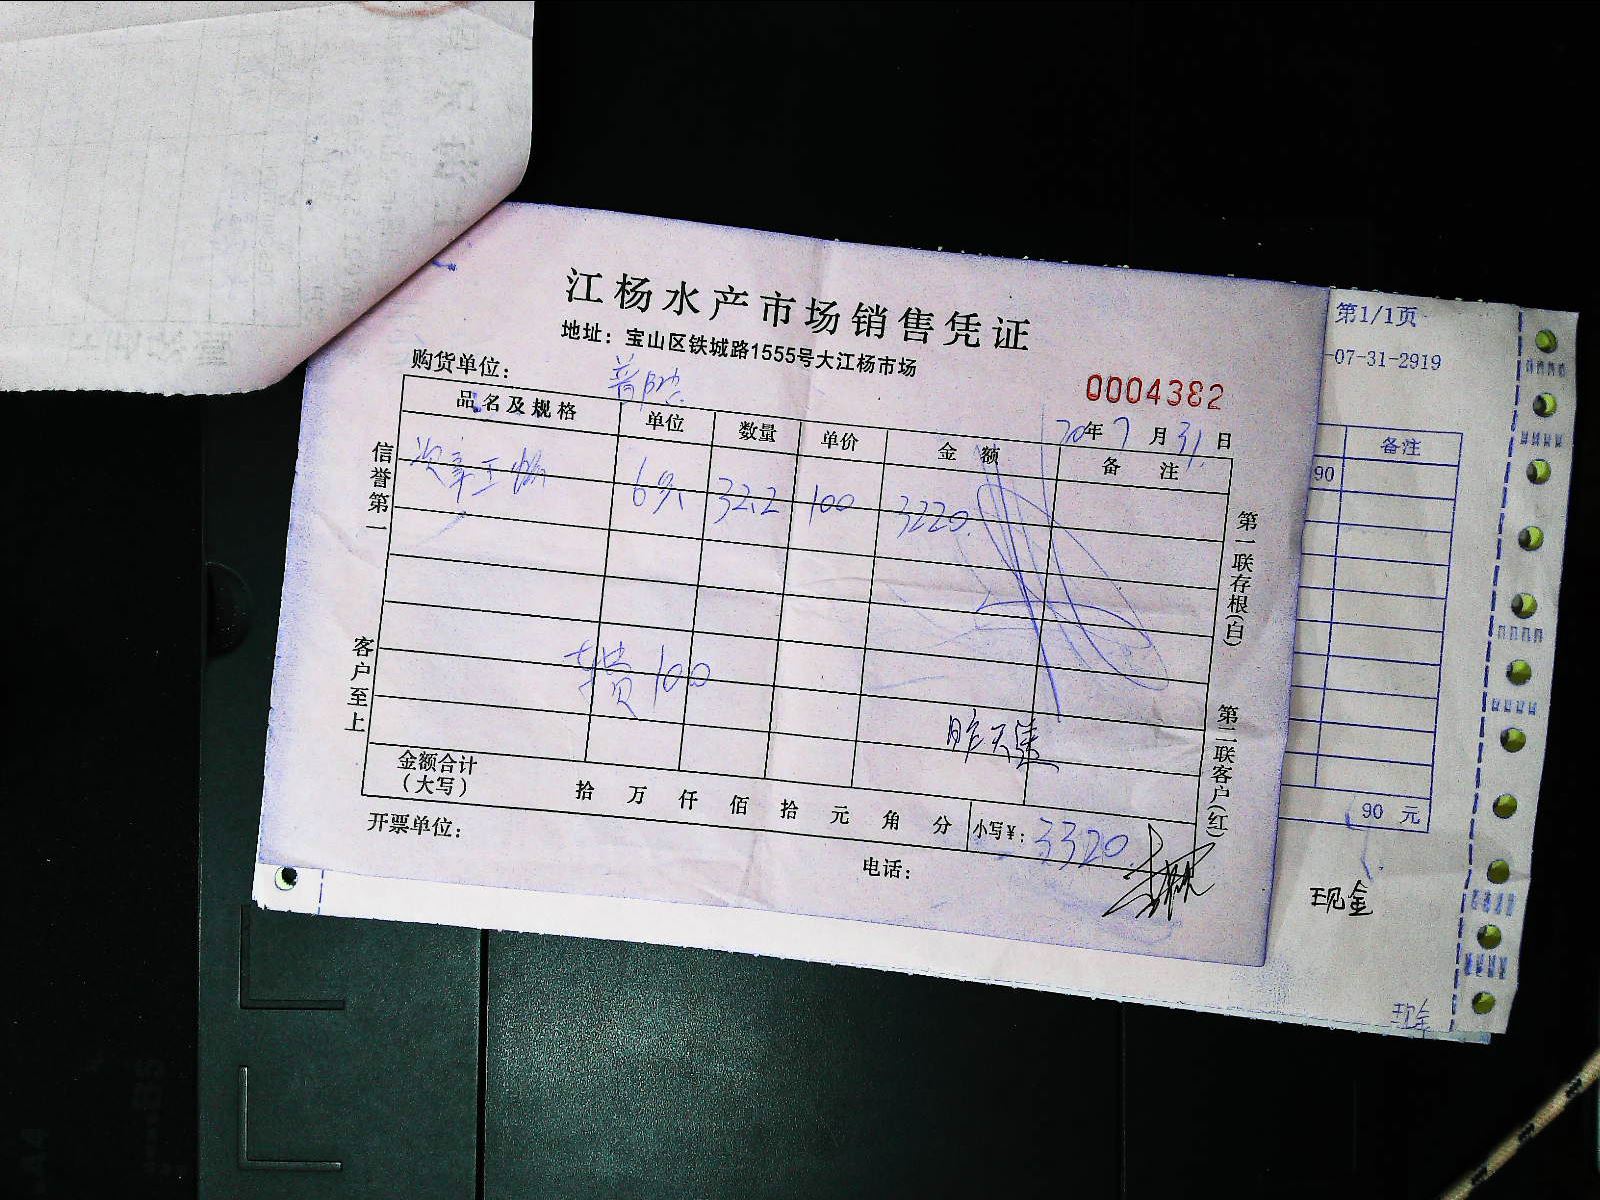 江杨水产市场销售凭证
地址：宝山区铁城路1555号大江杨市场
购货单位：普陀
0004382
20年7月31日
品名及规格 单位 数量 单价 金额 备注
6只 32.2 100 3220
车费 100
昨天鱼
金额合计（大写） 拾 万 仟 佰 拾 元 角 分 小写¥：3320
开票单位：
电话：
信誉第一
客户至上
第一联存根(白)
第二联客户(红)
第1/1页
-07-31-2919
备注
90
90 元
现金
现金